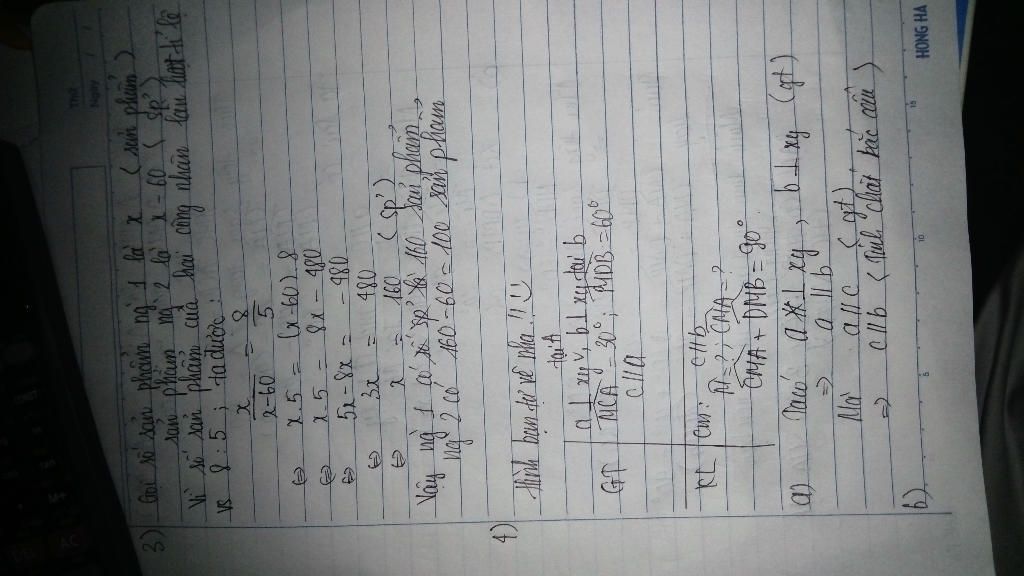 Thứ
Ngày / /
3) Gọi số sản phẩm ng 1 là x (sản phẩm)
số sản phẩm ng 2 là x - 60 (sp)
Vì số sản phẩm của hai công nhân lần lượt tỉ lệ
vs 8 : 5 ; ta được:
x/x-60 = 8/5
⇔ x.5 = (x-60).8
⇔ x.5 = 8x - 480
⇔ 5x - 8x = -480
⇔ 3x = 480
⇔ x = 160 (sp)
Vậy ng 1 có số sp là 160 sản phẩm →
ng 2 có 160 - 60 = 100 sản phẩm
4)
Hình bạn tự vẽ nha!!
GT a ⊥ xy tại A, b ⊥ xy tại b
MCA = 30°; MDB = 60°
c//a
KL cm: c//b
M = ?; CMA = ?
CMA + DMB = 90°.
a) Ta có a ⊥ xy, b ⊥ xy (gt)
⇒ a // b
Mà a // c (gt)
⇒ c // b (Tính chất bắc cầu)
b)
HONG HA
5
10
15